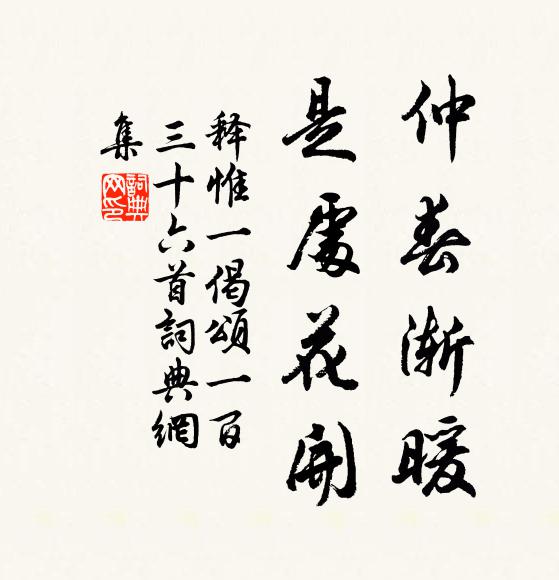 仲春漸暖
是處花開
释惟一偈頌一百
三十六首詞典網
集
詞典網印